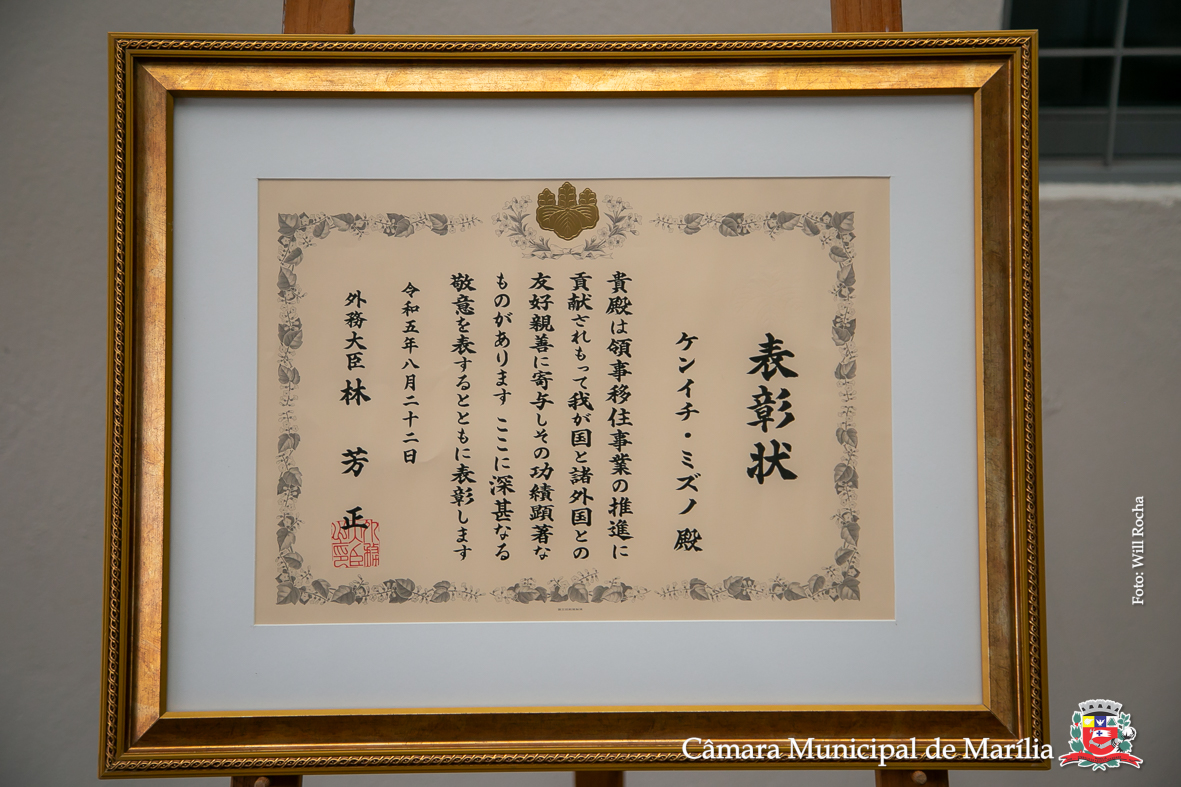 表彰状
ケンイチ・ミズノ 殿
貴殿は領事移住事業の推進に
貢献されもって我が国と諸外国との
友好親善に寄与しその功績顕著な
ものがあります ここに深甚なる
敬意を表するとともに表彰します
令和五年八月二十二日
外務大臣 林 芳 正
Foto: Will Rocha
Câmara Municipal de Marília